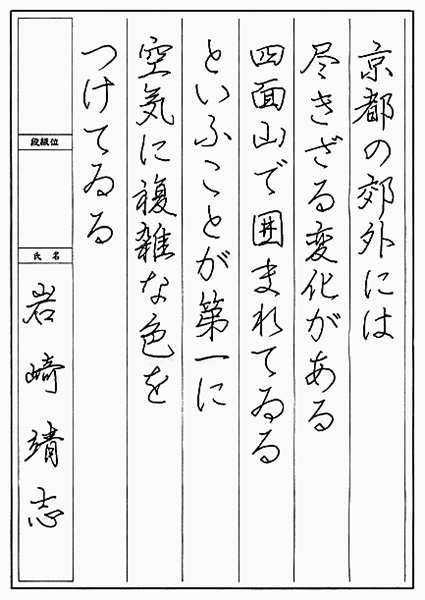 京都の郊外には
尽きざる変化がある
四面山で囲まれてゐる
といふことが第一に
空気に複雑な色を
つけてゐる
段級位
氏名
岩崎靖志